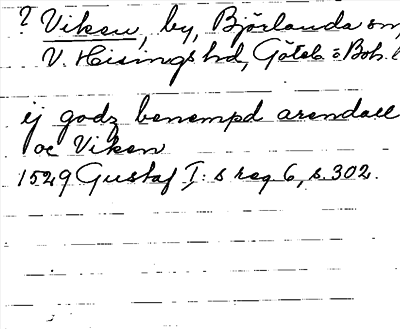 ? Viken, by, Björlanda sn,
V. Hisings hd, Göteb. o Boh. l
ej godz benempd arendall
oc Viken
1529 Gustaf I:s reg 6, s. 302.